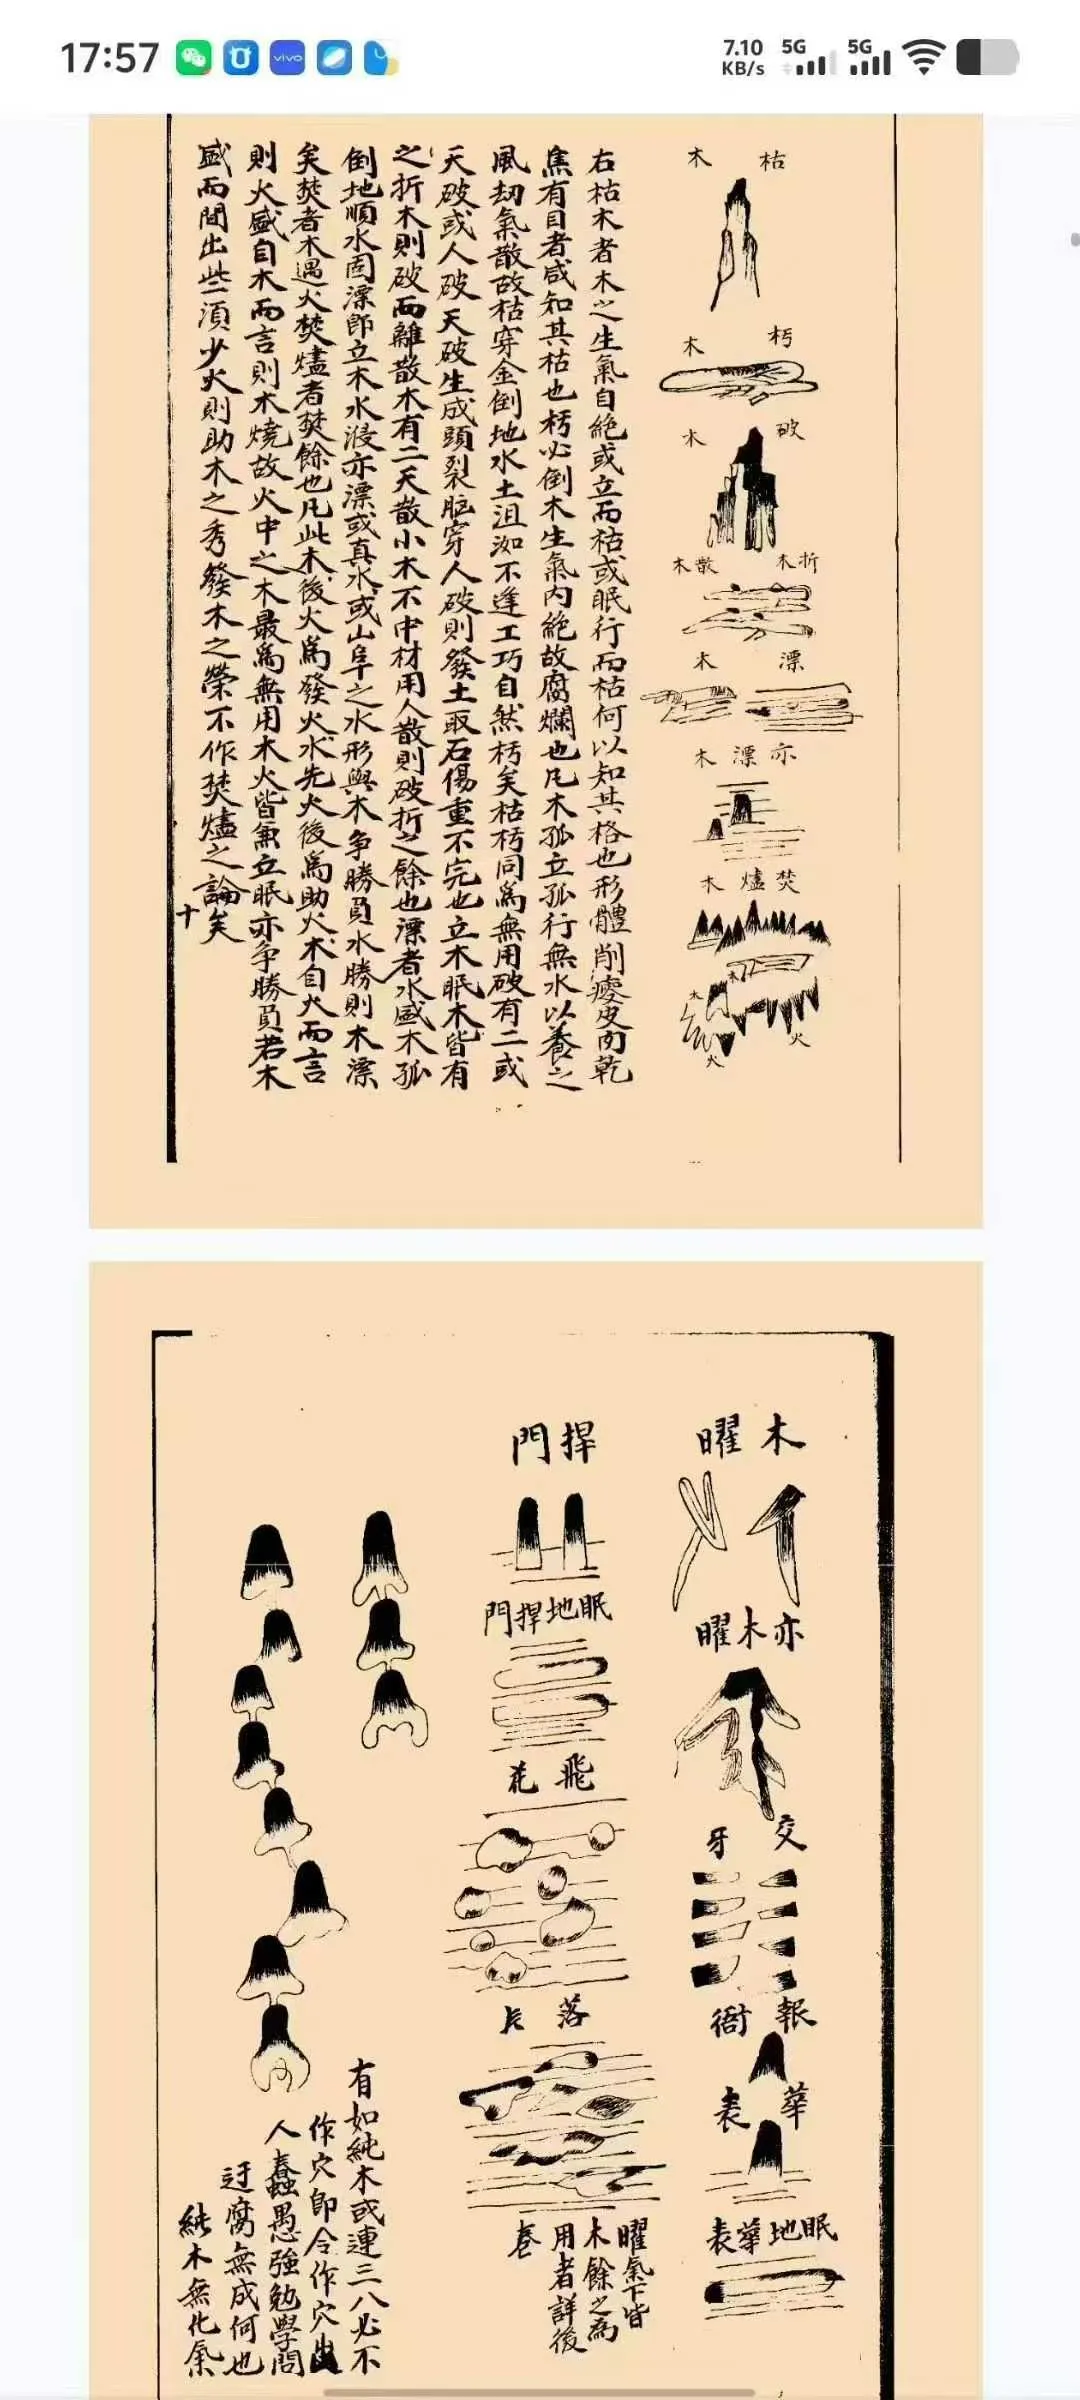 17:57
vivo
7.10 KB/s
5G
5G
枯木
朽木
破木
折木 散木
漂木
亦漂木
焚燼木
木
木
火
火
右枯木者木之生氣自絕或立而枯或眠行而枯何以知其格也形體削瘦皮肉乾
焦有目者咸知其枯也朽必倒木生氣內絕故腐爛也凡木孤立孤行無水以養之
風劫氣散故枯穿金倒地水土沮洳不逢工巧自然朽矣枯朽同為無用破有二或
天破或人破天破生成頭裂脏穿人破則發土取石傷重不完也立木眠木皆有
之折木則破而離散木有二天散小木不中材用人散則破折之餘也漂者水盛木孤
倒地順水固漂即立木水浸亦漂或真水或山阜之水形與木爭勝負水勝則木漂
矣焚者木遇火焚燼者焚餘也凡此木後火為發火水先火後為助火木自火而言
則火盛自木而言則木燒故火中之木最為無用木火皆兼立眠亦爭勝負若木
盛而間出些須少火則助木之秀發木之榮不作焚燼之論矣
十
木曜
亦木曜
交牙
報衙
華表
眠地華表
捍門
眠地捍門
飛花
落
曜氣下皆
木餘之為
用者詳後
卷
有如純木或連三八必不
作穴即令作穴出
人蠢愚強勉學問
迂腐無成何也
純木無化氣